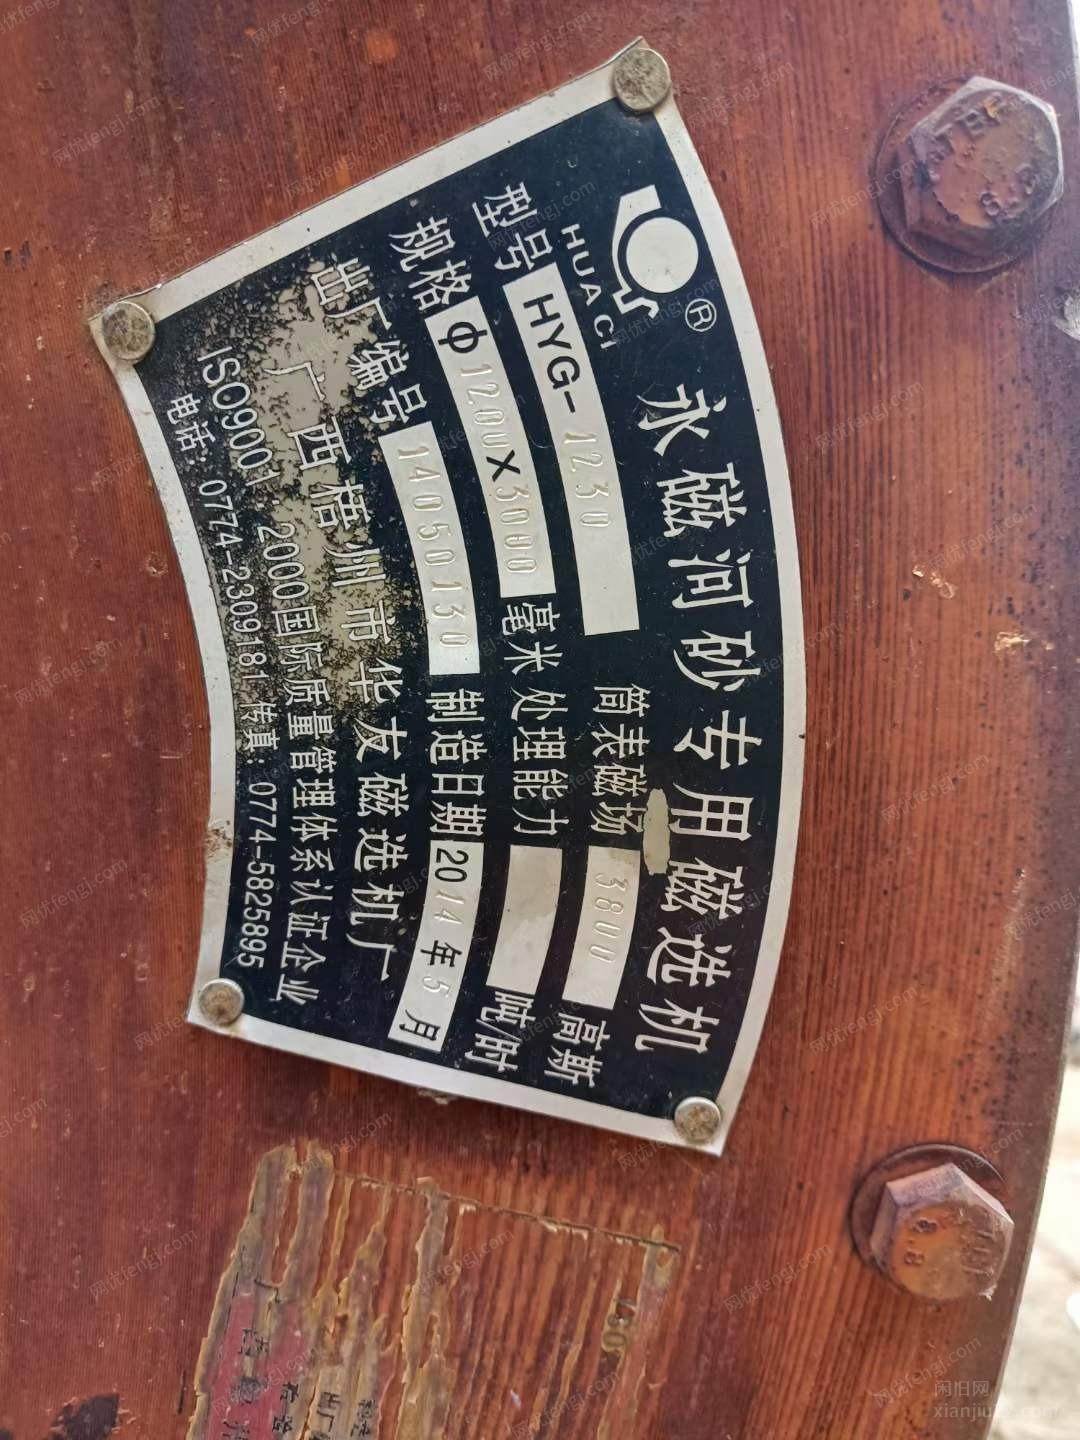 HUA CI ® 永磁河砂专用磁选机
型号 HYG- 1230 筒表磁场 3800 高斯
规格 φ 1200 × 3000 毫米 处理能力 吨/时
出厂编号 14050130 制造日期 2014 年 5 月
广西梧州市华友磁选机厂
ISO9001 2000国际质量管理体系认证企业
电话: 0774-2309181 传真: 0774-5825895
TBF
8.8
8.8
闲旧网
网优fengj.com